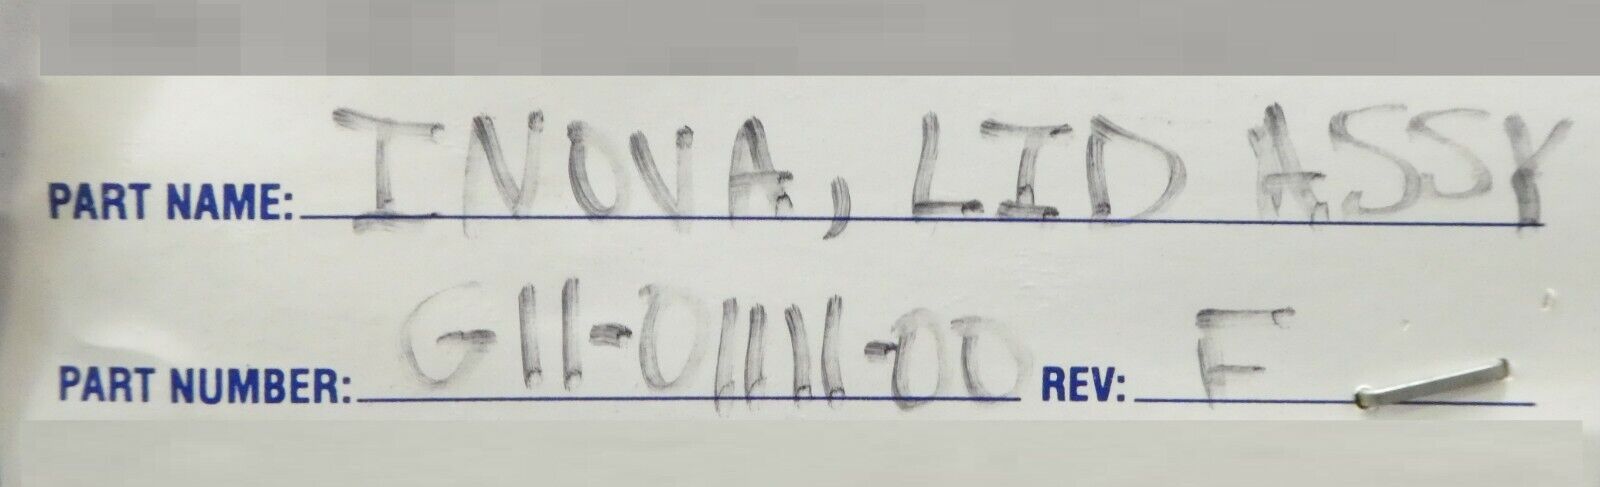 PART NAME: INOVA, LID ASSY
PART NUMBER: G11-01111-00 REV: F